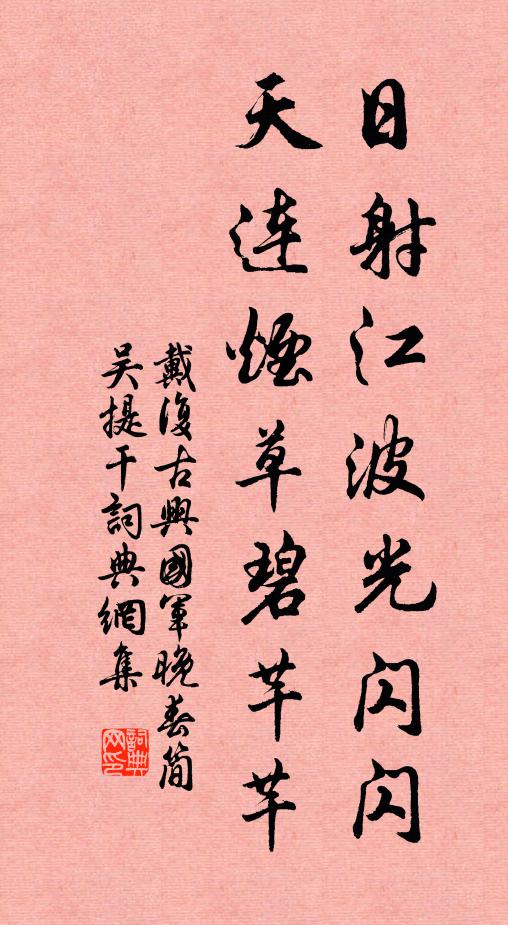 日射江波光闪闪
天连煙草碧芊芊
戴復古興國軍晚春简
吴提干詞典網集
詞典网印